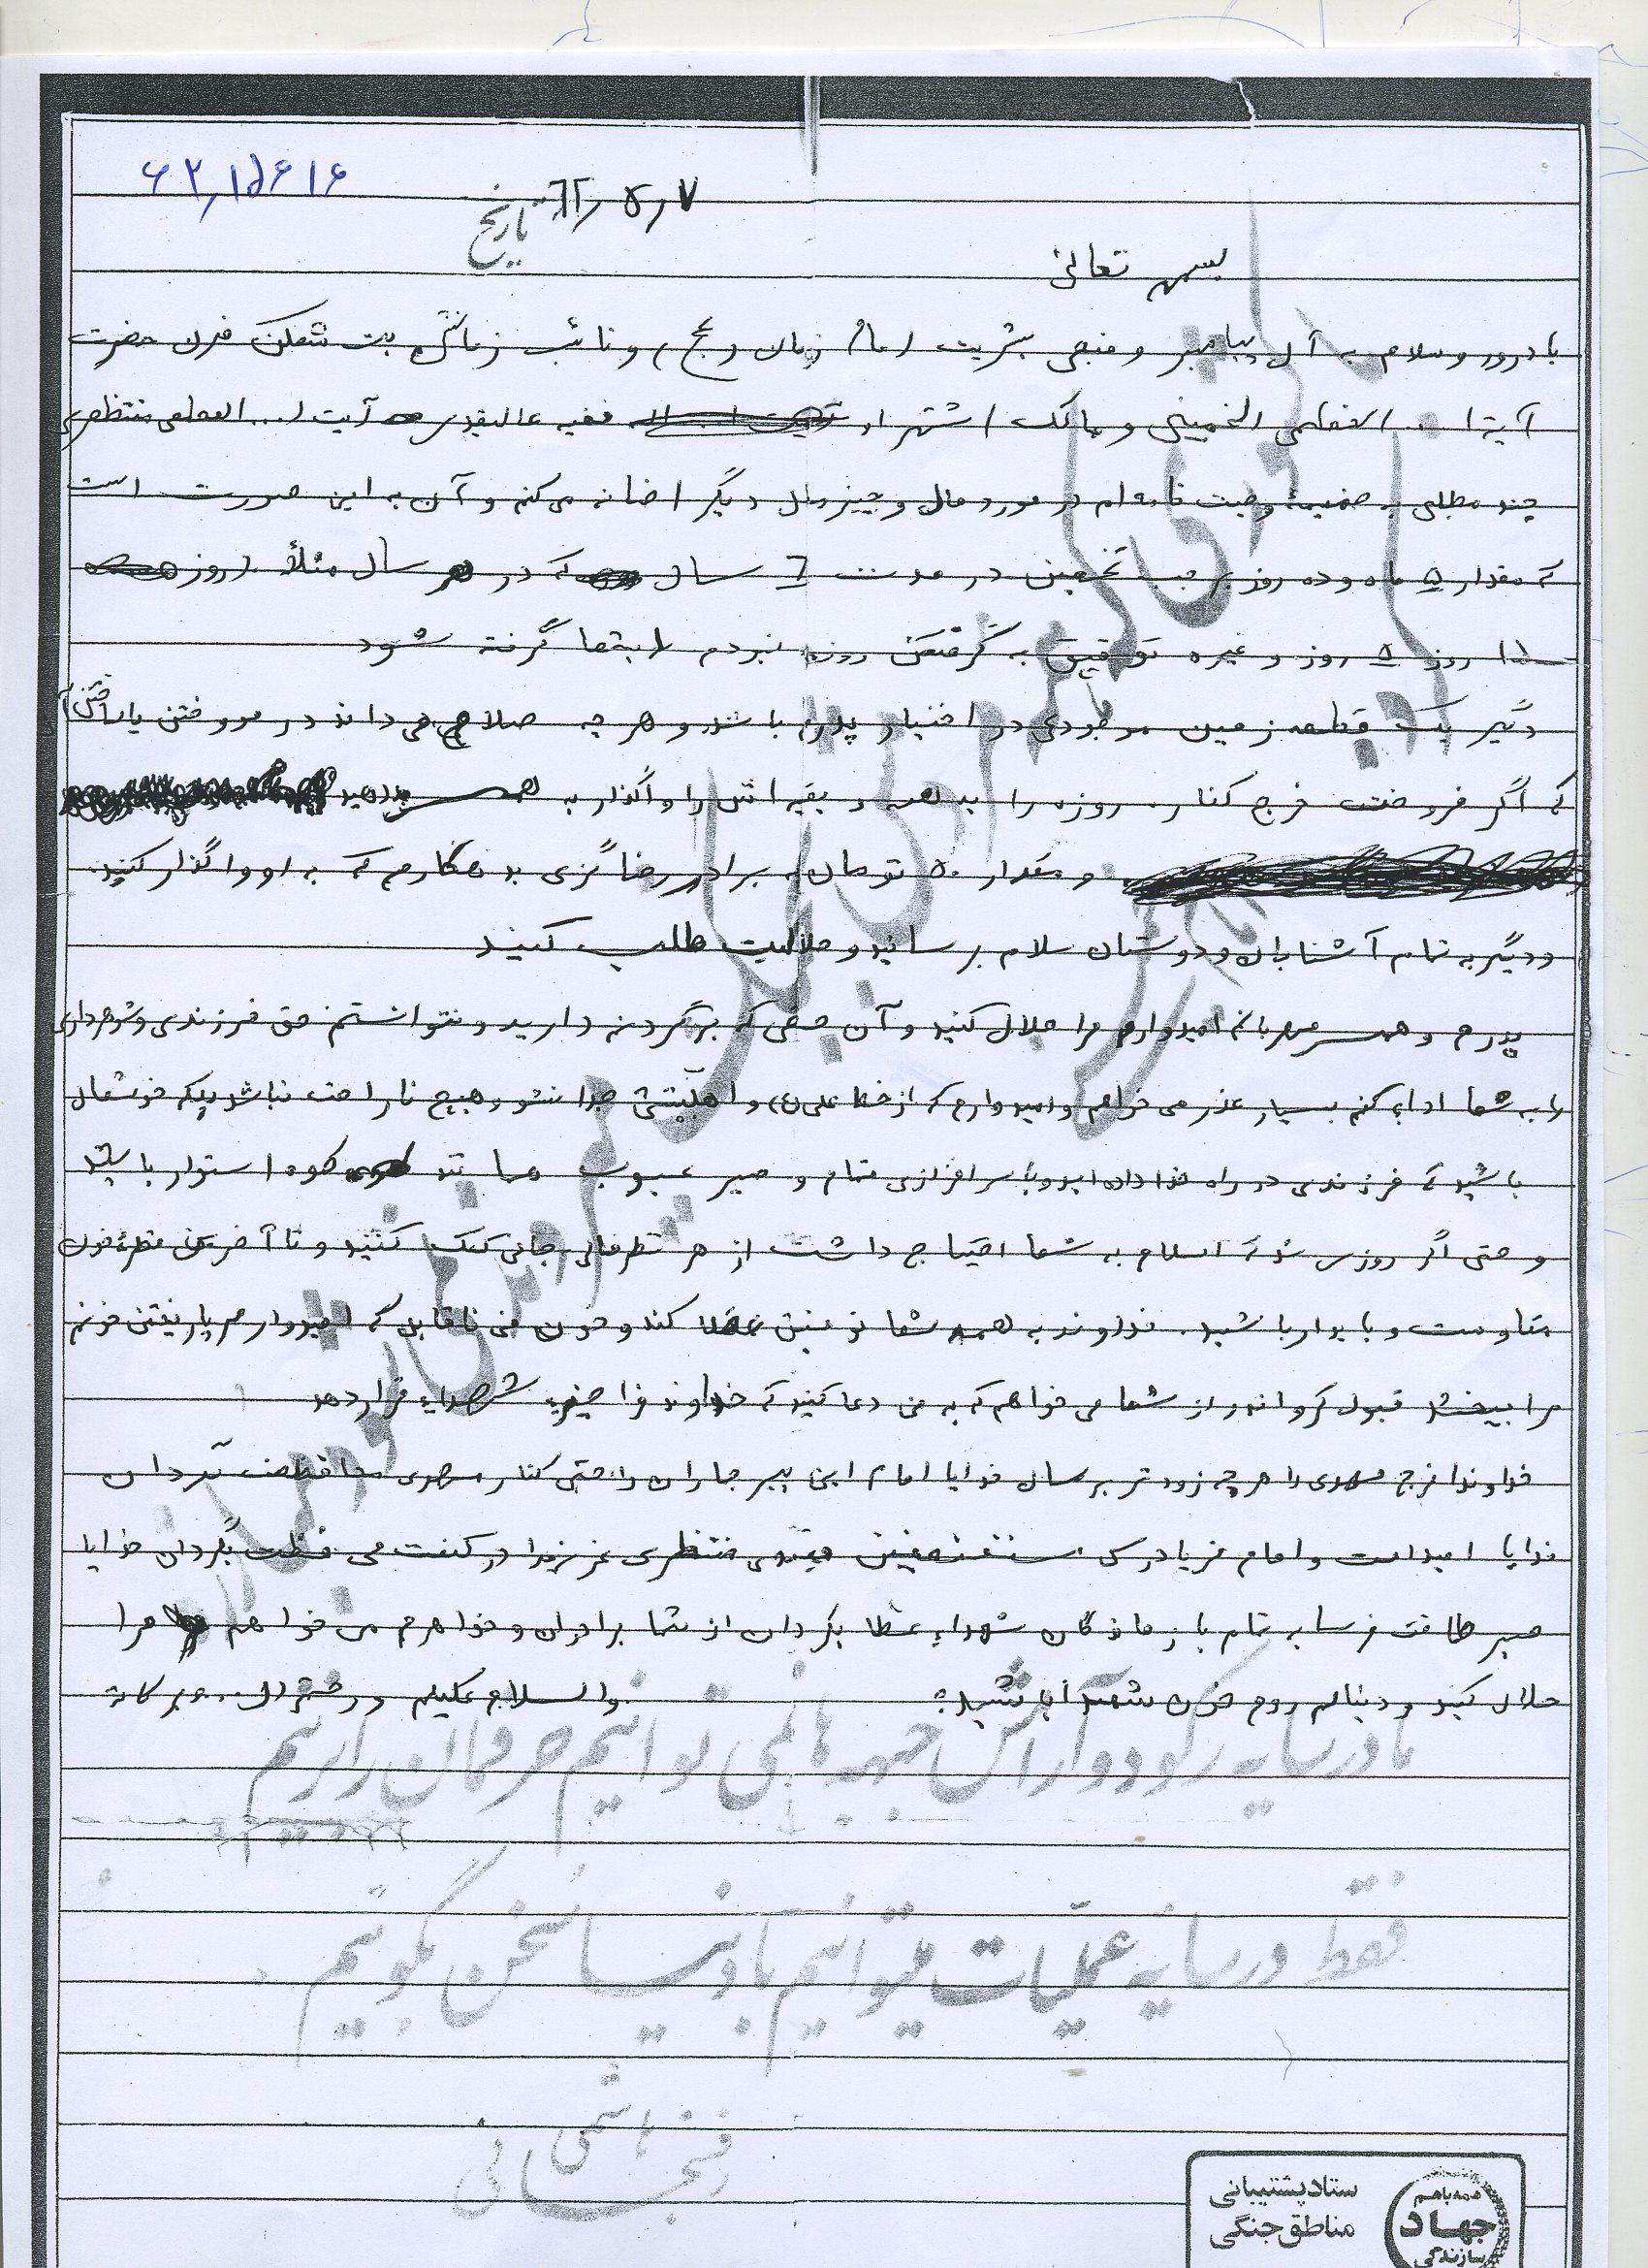 ۶۲٫۱۵۶۱۶
تاریخ ۷ ر ۵ ر ۶۲
بسمه تعالی
با درود و سلام به آل پیامبر و منجی بشریت امام زمان (عج) و نائب زمانش بت شکن قرن حضرت
آیة ا... العظمی الخمینی و مالک اشتهر او فقیه عالیقدر آیت ا... العظمی منتظری
چند مطلبی به ضمیمهٔ وصیت نامه‌ام در مورد مال و چیزهای دیگر اضافه می کنم و آن به این صورت است
که مقدار ۵ ماه و ده روز بر حسب تخمین در مدت ۶ سال که در هر سال مثلاً ۱۰ روز
۱۵ روز ۵ روز و غیره توفیق به گرفتن روزه نبردم اینها گرفته شود
دگیر یک قطعه زمین موجودی در اختیار پدرم باشد و هر چه صلاح می داند در فروختن یا ساختن
که اگر فروخت خرج کفاره روزه را بدهد و بقیه اش را واگذار به همسر بدهید
و مقدار ۵۰ تومان به برادر رضا گزی بدهکارم که به او واگذار کنید.
ودیگر به تمام آشنایان و دوستان سلام برسانید و حلالیت طلب کنید
پدرم و همسر مهربانم امیدوارم مرا حلال کنید و آن حقی که بر گردنم دارید و نتوانستم حق فرزندی و شوهرداری
را به شما اداء کنم بسیار عذر می خواهم و امیدوارم که از خط علی (ع) و اهلبیتش جدا نشو و هیچ ناراحت نباشد بلکه خوشحال
باشید که فرزندی در راه خدا داده اید و با سرافرازی تمام و صبر عیوب همانند کوه استوار باشید
و حتی اگر روزی شد که اسلام به شما احتیاج داشت از هر نظر مالی جانی کمک کنید و تا آخرین قطرهٔ خون
مقاومت و پایدار باشید. خداوند به همه شما توفیق عطا کند و خون من ناقابل که امیدوارم با ریختن خونم
مرا ببخشد قبول گرداند و از شما می خواهم که به من دعا کنید که خداوند مرا جزء شهداء قرار دهد
خداوندا فرج مهدی را هر چه زودتر برسان خدایا امام این پیر جماران را حتی کنار مهدی محافظت گردان
خدایا امید امت و امام فریادرس مستضعفین فقیه منتظری عزیز را در کنفت می حفظت بگردان خدایا
صبر طاقت فرسا به تمام بازماندگان شهداء عطا بگردان از شما برادران و خواهرم می خواهم مرا
حلال کنید و دنباله روح خون شهدا باشید. والسلام علیکم و رحمة ال... و برکاته
ما در سایه رکود و آرامش جبهه ها نمی توانیم حرفمان را بزنیم
فقط در سایه عملیات میتوانیم با دنیا سخن بگوئیم
هاشمی
رفسنجانی
ستاد پشتیبانی
مناطق جنگی
همه باهم
جهاد
سازندگی